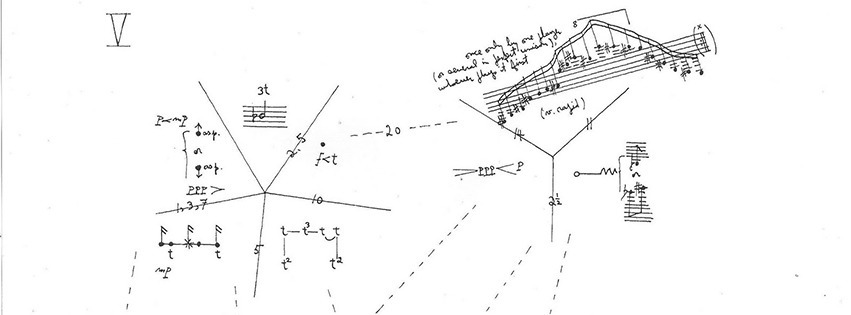 V
once only by one player
(or several in perfect unison),
whoever plays it first
8
(v. rapid)
3t
p
P<mp
asp.
or
asp.
ppp >
2.5
f<t
20
14
11
1,3,7
10
5
2½
> ppp < p
t t
mp
t — t³ — t t
t² t²